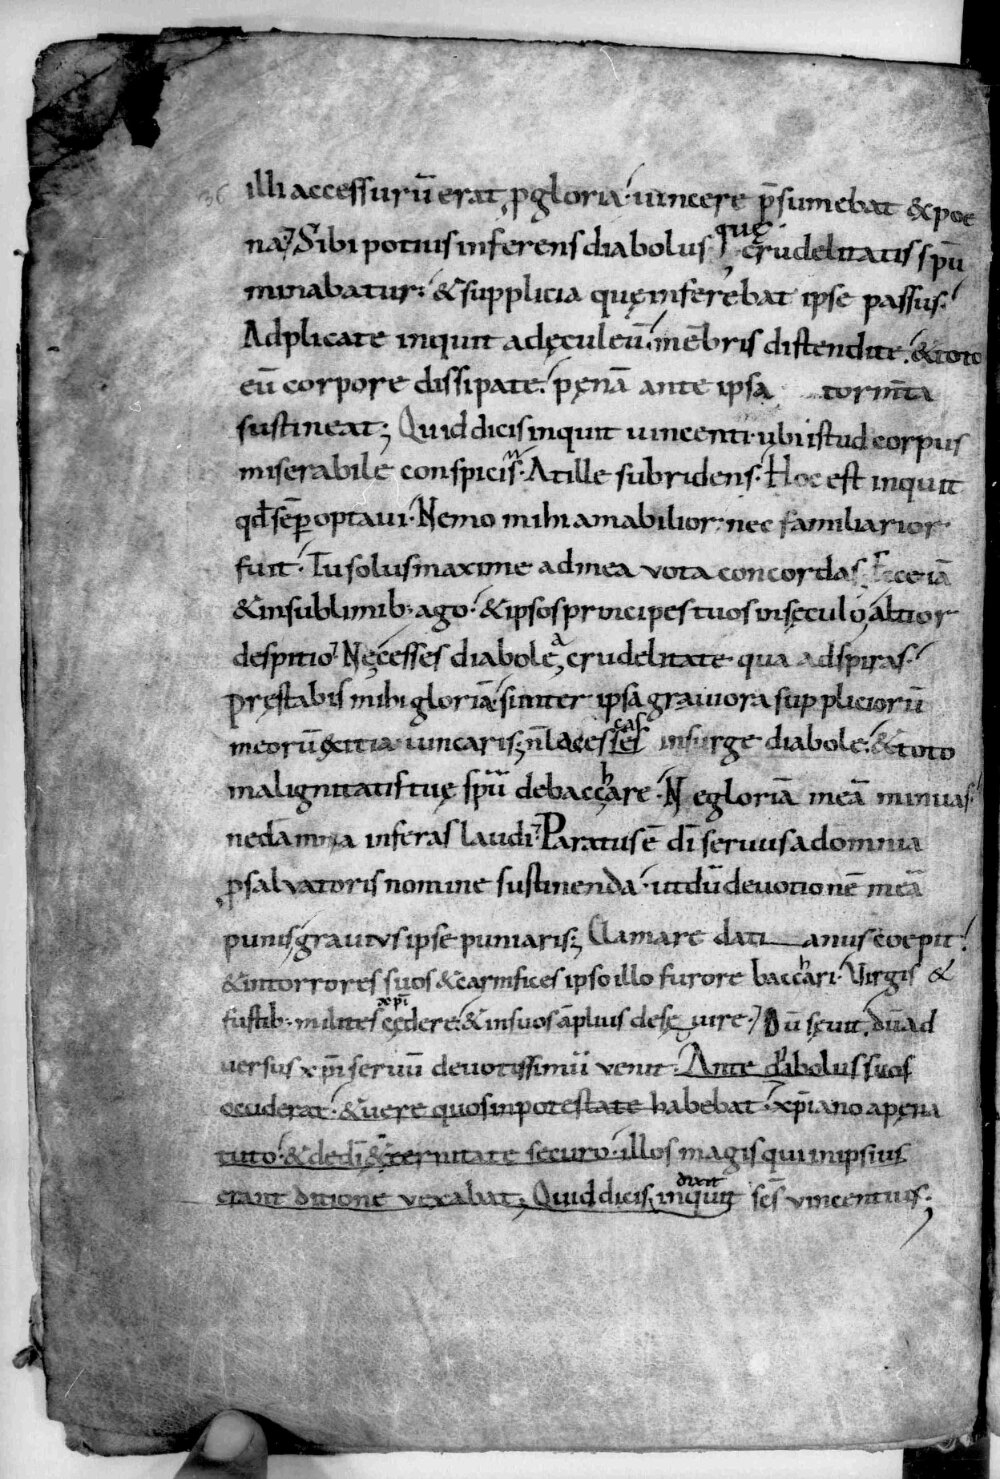 illi accessurū erat, ꝓ gloria uincere p̄sumebat & poe
na; Sibi potius inferens diabolus quę crudelitatis spū
minabatur: & supplicia quę inferebat ipse passus.
Adplicate inquit adęculeū. mēbris distendite. & toto
eū corpore dissipate. pęnā ante ipsa tormta
sustineat; Quid dicis inquit uincenti. ubi istud corpus
miserabile conspicis. At ille subridens. Hoc est inquit
qđ sēp optaui. Nemo mihi amabilior: nec familiarior
fuit. Tu solus maxime ad mea vota concordas, Ecce iā
& in sublimib; ago. & ipsos principes tuos in sęculo, altior
despitio; Nęcesses diabole, a crudelitate qua adspiras.
pręstabis mihi gloriā. si inter ipsa grauiora suppliciorū
meorū uincaris; nlacesses cas insurge diabole. & toto
malignitatis tuę spū debacchare. Ne gloriā meā minuas,
ne damna inferas laudi; Paratus ē dī seruus ad omnia
ꝓ saluatoris nomine sustinenda. ut dū deuotionē meā
punis, grauius ipse puniaris; Clamare dati anus coepit.
& in torrores suos & carnifices ipso illo furore bacchari. Virgis &
fustib; milites xp̄i cędere. & in suos āplius desęuire; Dū sęuit, dū ad
uersus xp̄i seruū deuotissimū uenit. Ante diabolus suos
occiderat. & uere quos in potestate habebat. xp̄iano a pęna
tuto. & de dī ęternitate securo. illos magis qui in ipsius
erant ditione vexabat; Quid dicis, inquit dixit scs̄ vincentius;
36